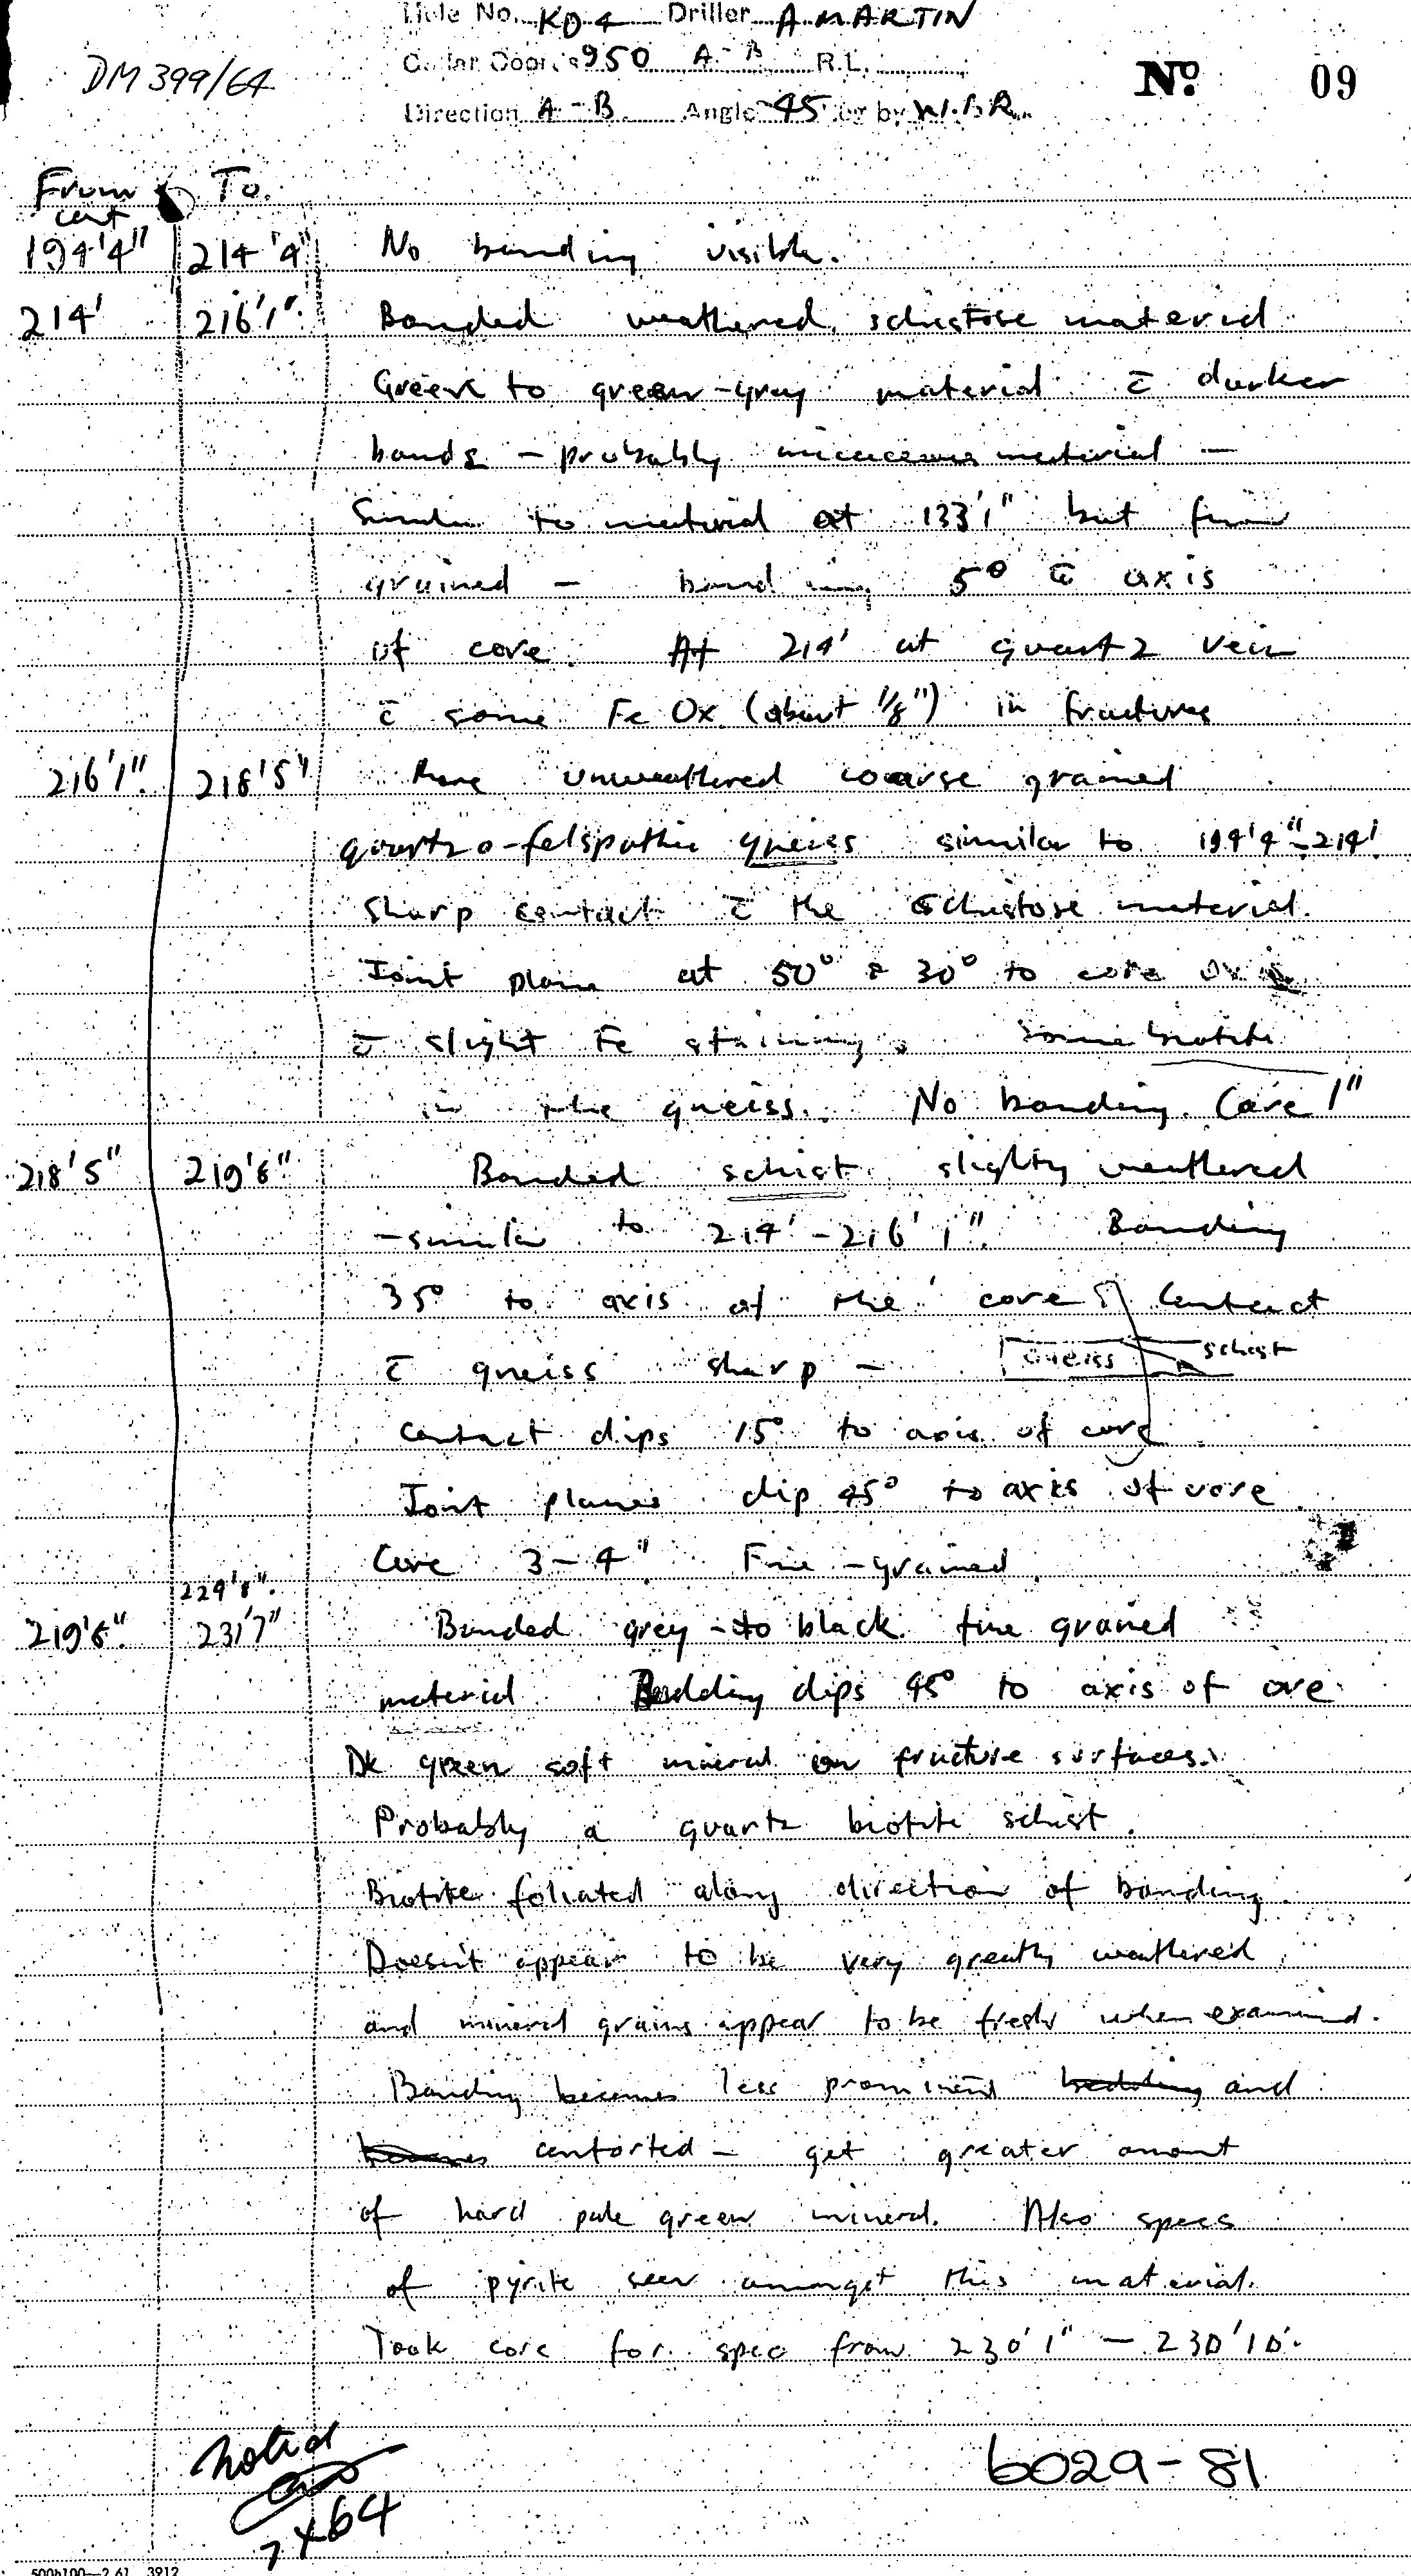 Hole No. KD4 Driller A MARTIN
DM 399/64
Collar Coords 950 A-B R.L.
No. 09
Direction A-B Angle 45 Log by W.B.R.
From To.
cont
194'4" 214'4" No banding visible.
214' 216'1" Banded weathered schistose material
Green to green-grey material c̄ darker
bands - probably micaceous material -
Similar to material at 133'1" but finer
grained - banding 5° to axis
of core. At 214' at quartz vein
c̄ some Fe Ox (about 1/8") in fractures
216'1" 218'5" More unweathered coarse grained
quartzo-felspathic gneiss similar to 194'4"-214'
Sharp contact c̄ the schistose material.
Joint plane at 50° & 30° to core axis
c̄ slight Fe staining. Some biotite
in the gneiss. No banding. Core 1"
218'5" 219'6" Banded schist slightly weathered
- similar to 214'-216'1". Banding
35° to axis of the core. Contact
c̄ gneiss sharp - gneiss schist
Contact dips 15° to axis of core
Joint planes dip 45° to axis of core
Core 3-4". Fine-grained.
229'8".
219'6" 231'7" Banded grey-to black fine grained
material. Bedding dips 45° to axis of core.
Dk green soft mineral on fracture surfaces.
Probably a quartz biotite schist.
Biotite foliated along direction of banding.
Doesn't appear to be very greatly weathered
and mineral grains appear to be fresh when examined.
Banding becomes less prominent bedding and
becomes contorted - get greater amount
of hard pale green mineral. Also specs
of pyrite seen amongst this material.
Took core for spec from 230'1" - 230'10".
Noted
7 X 64
6029-81
500b100—2.61 3912